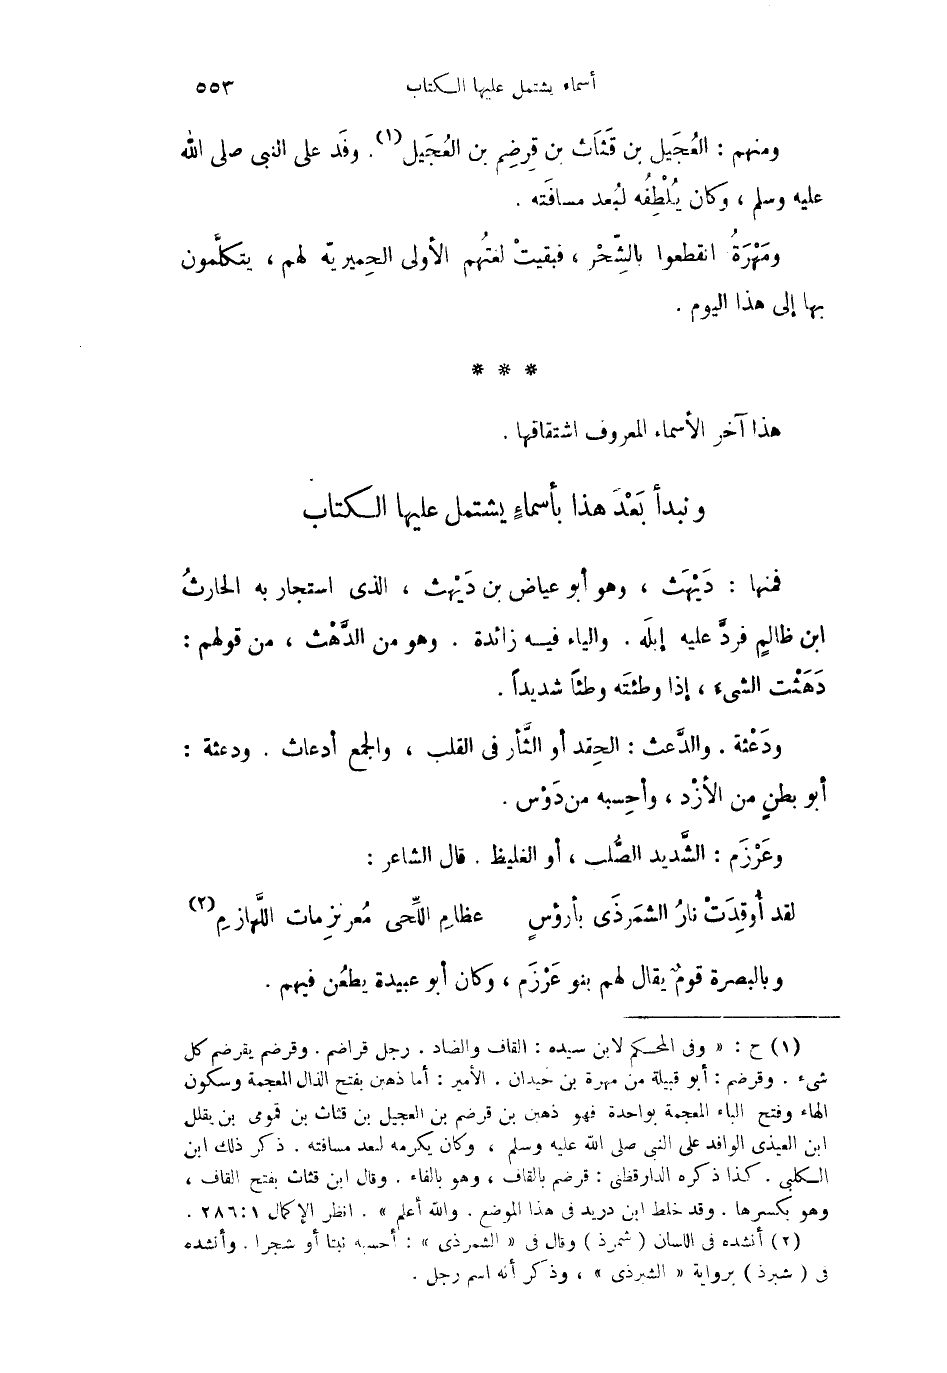 أسماء يشتمل عليها الكتاب ٥٥٣
ومنهم : العُجَيل بن قَثَاث بن قِرضِم بن العُجَيل(١) . وفَد على النبى صلى الله
عليه وسلم ، وكان يُلْطِفُه لبُعد مسافَته .
ومَهْرَةُ انقطعوا بالشِّحْر ، فبقيتْ لغتُهم الأولى الحِميريّة لهم ، يتكلَّمون
بها إلى هذا اليوم .
* * *
هذا آخر الأسماء المعروف اشتقاقها .
ونبدأ بَعْدَ هذا بأسماءٍ يشتمل عليها الكتاب
فمنها : دَيْهَث ، وهو أبو عياض بن دَيْهث ، الذى استجار به الحارثُ
ابن ظالمٍ فردَّ عليه إبلَه . والياء فيه زائدة . وهو من الدَّهْث ، من قولهم :
دَهَثْت الشىء ، إذا وطئتَه وطئاً شديداً .
ودَعْثة . والدَّعث : الحِقد أو الثَّأر فى القلب ، والجمع أدعاث . ودعثة :
أبو بطنٍ من الأزْد ، وأحِسبه من دَوْس .
وعَرْزَم : الشَّديد الصُّلب ، أو الغليظ . قال الشاعر :
لقد أُوقِدَتْ نارُ الشمَرذَى بأرؤسٍ عظامِ اللِّحى مُعرنزِمات اللَّهازِمِ(٢)
وبالبصرة قومٌ يقال لهم بنو عَرْزَم ، وكان أبو عبيدة يطعُن فيهم .
(١) ح : « وفى المحكم لابن سيده : القاف والضاد . رجل قراضم . وقرضم يقرضم كل
شىء . وقرضم : أبو قبيلة من مهرة بن حيدان . الأمير : أما ذهبن بفتح الذال المعجمة وسكون
الهاء وفتح الباء المعجمة بواحدة فهو ذهبن بن قرضم بن العجيل بن قثاث بن قمومى بن يقلل
ابن العيذى الوافد على النبى صلى الله عليه وسلم ، وكان يكرمه لبعد مسافته . ذكر ذلك ابن
الكلبى . كذا ذكره الدارقطنى : قرضم بالقاف ، وهو بالفاء . وقال ابن قثاث بفتح القاف ،
وهو بكسرها . وقد خلط ابن دريد فى هذا الموضع . والله أعلم » . انظر الإكمال ٢٨٦:١ .
(٢) أنشده فى اللسان ( شمرذ ) وقال فى « الشمرذى » : أحسبه نبتا أو شجرا . وأنشده
فى ( شبرذ ) برواية « الشبرذى » ، وذكر أنه اسم رجل .